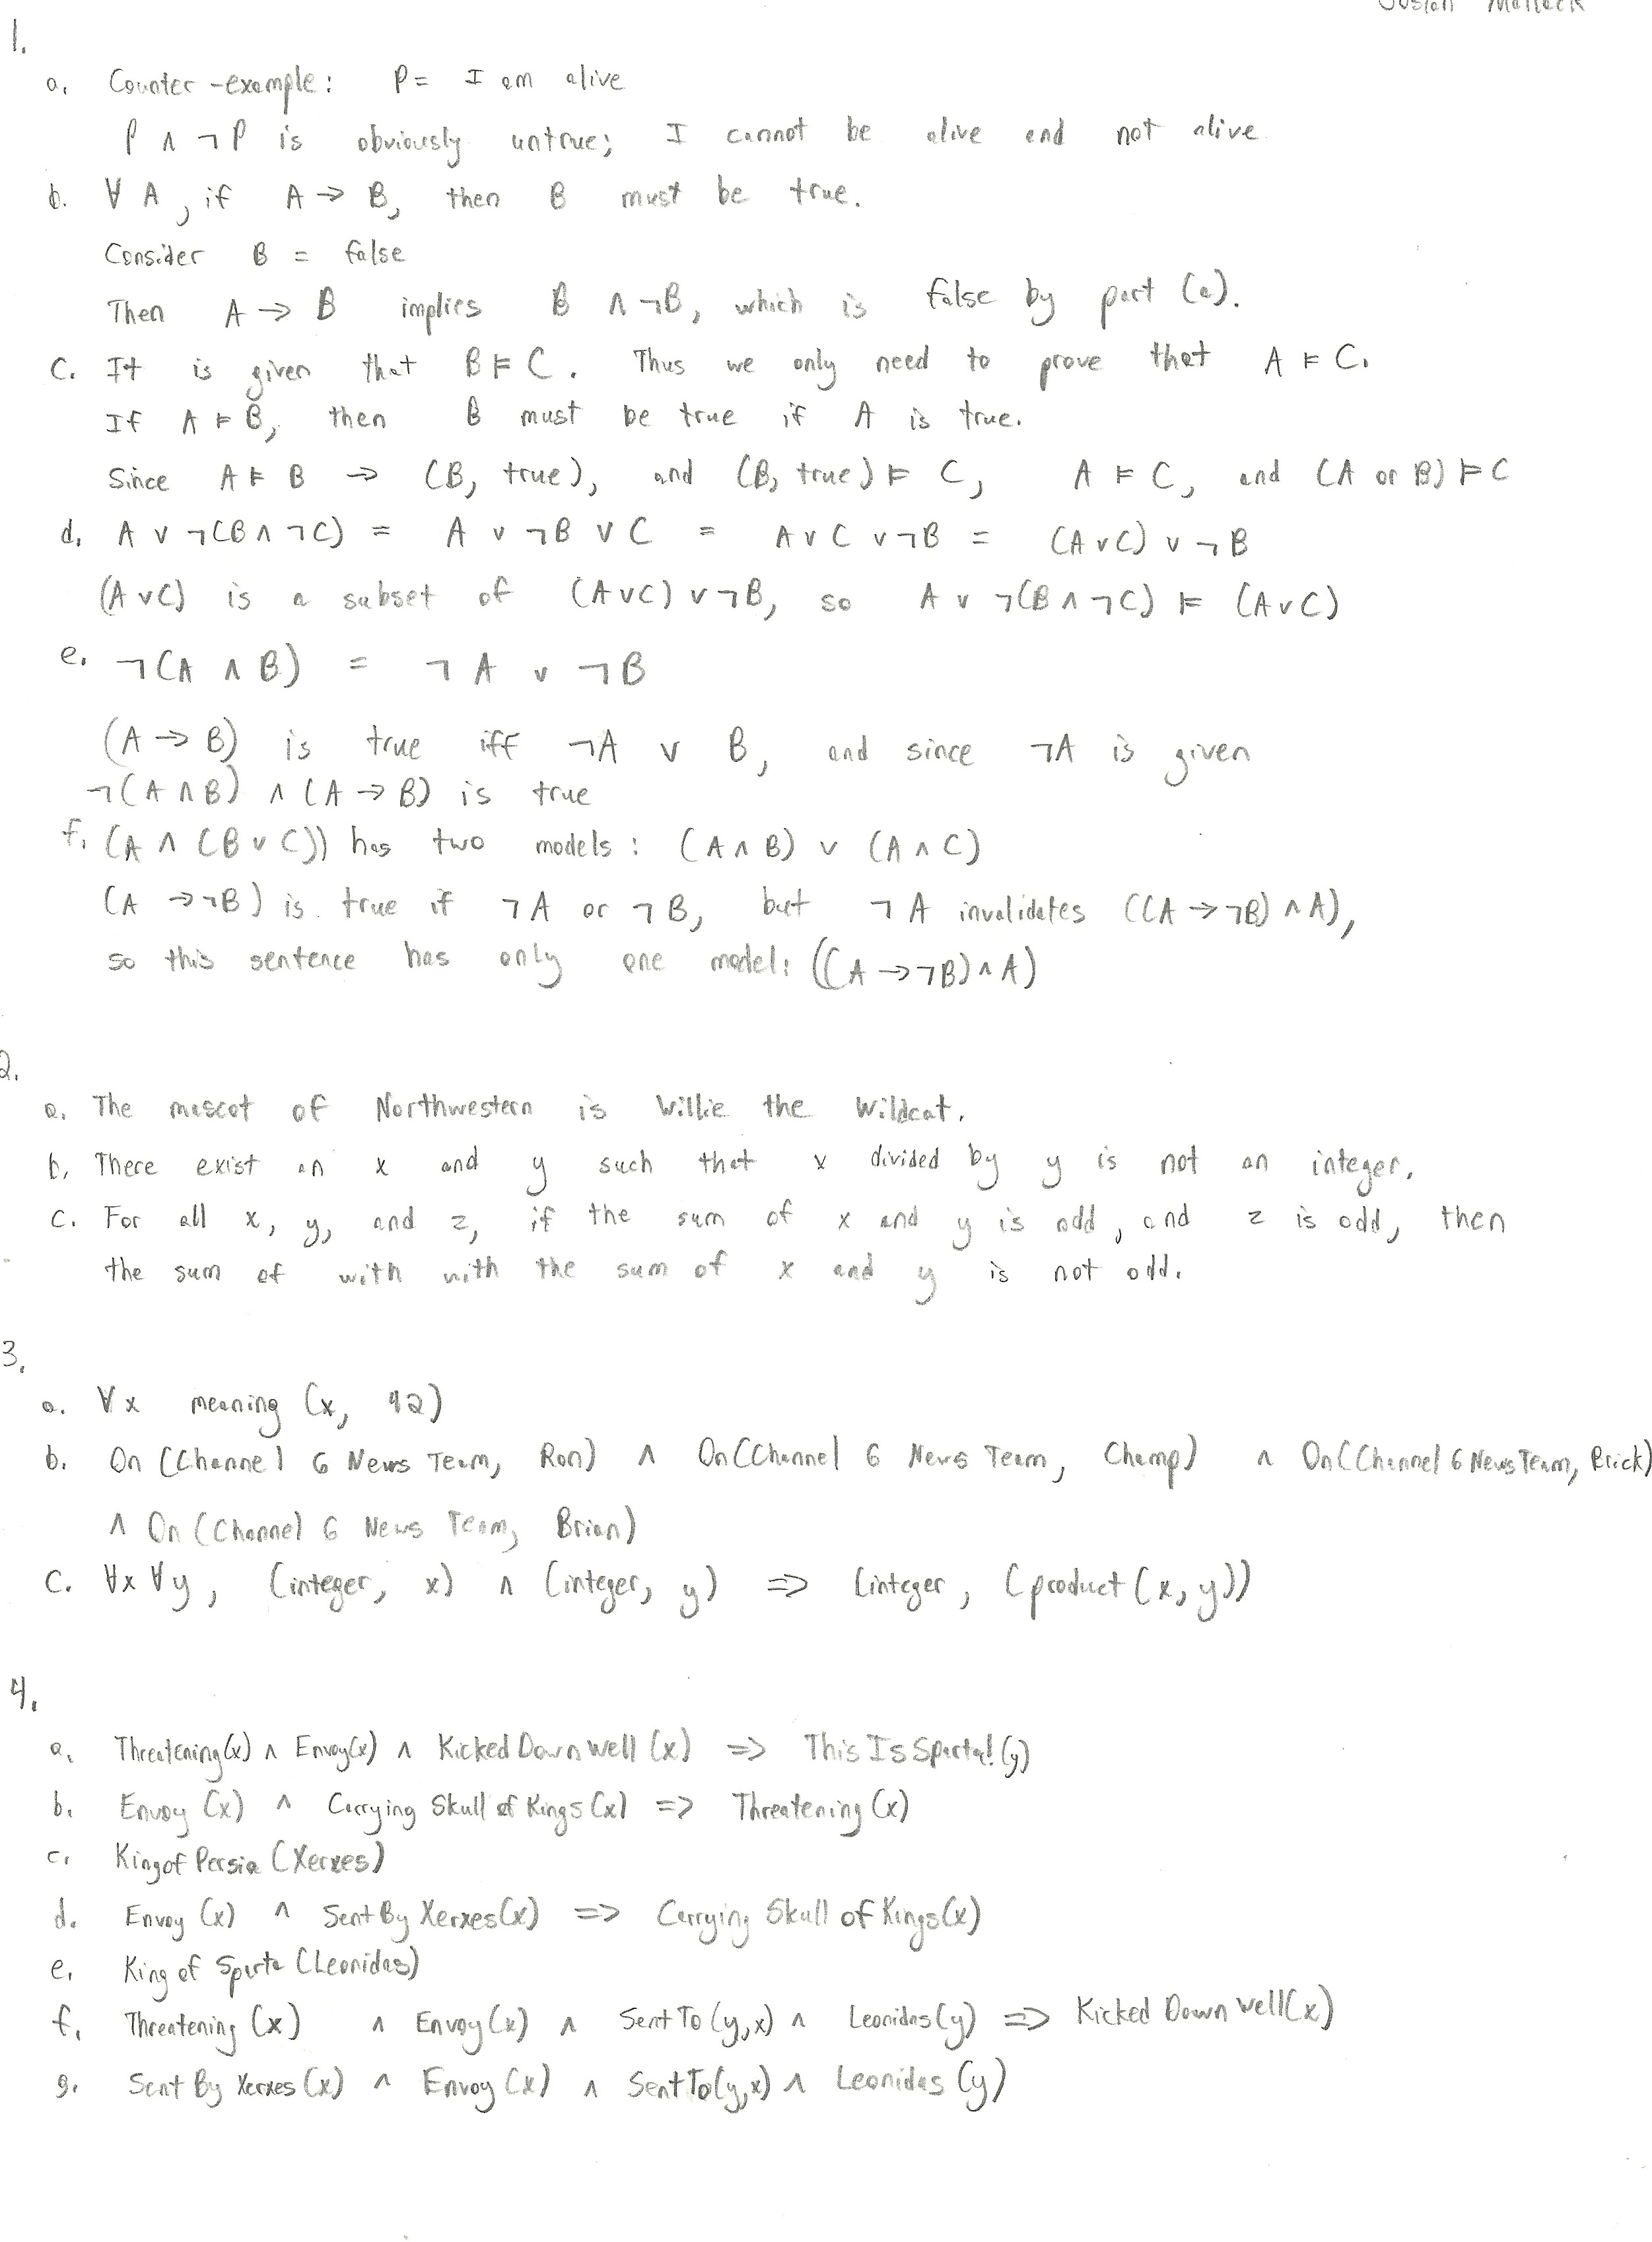 1.
a. Counter-example: P = I am alive
P ∧ ¬P is obviously untrue; I cannot be alive and not alive
b. ∀ A, if A → B, then B must be true.
Consider B = false
Then A → B implies B ∧ ¬B, which is false by part (a).
c. It is given that B ⊨ C. Thus we only need to prove that A ⊨ C.
If A ⊨ B, then B must be true if A is true.
Since A ⊨ B → (B, true), and (B, true) ⊨ C, A ⊨ C, and (A or B) ⊨ C
d. A ∨ ¬(B ∧ ¬C) = A ∨ ¬B ∨ C = A ∨ C ∨ ¬B = (A ∨ C) ∨ ¬B
(A ∨ C) is a subset of (A ∨ C) ∨ ¬B, so A ∨ ¬(B ∧ ¬C) ⊨ (A ∨ C)
e. ¬(A ∧ B) = ¬A ∨ ¬B
(A → B) is true iff ¬A ∨ B, and since ¬A is given
¬(A ∧ B) ∧ (A → B) is true
f. (A ∧ (B ∨ C)) has two models: (A ∧ B) ∨ (A ∧ C)
(A → ¬B) is true if ¬A or ¬B, but ¬A invalidates ((A → ¬B) ∧ A),
so this sentence has only one model: ((A → ¬B) ∧ A)
2.
a. The mascot of Northwestern is Willie the Wildcat.
b. There exist an x and y such that x divided by y is not an integer.
c. For all x, y, and z, if the sum of x and y is odd, and z is odd, then
the sum of with with the sum of x and y is not odd.
3.
a. ∀x meaning (x, 42)
b. On (Channel 6 News Team, Ron) ∧ On (Channel 6 News Team, Champ) ∧ On (Channel 6 News Team, Brick)
∧ On (Channel 6 News Team, Brian)
c. ∀x ∀y, (integer, x) ∧ (integer, y) ⇒ (integer, (product (x, y))
4.
a. Threatening(x) ∧ Envoy(x) ∧ Kicked Down Well (x) ⇒ This Is Sparta! (y)
b. Envoy (x) ∧ Carrying Skull of Kings (x) ⇒ Threatening (x)
c. King of Persia (Xerxes)
d. Envoy (x) ∧ Sent By Xerxes (x) ⇒ Carrying Skull of Kings (x)
e. King of Sparta (Leonidas)
f. Threatening (x) ∧ Envoy (x) ∧ Sent To (y,x) ∧ Leonidas (y) ⇒ Kicked Down Well (x)
g. Sent By Xerxes (x) ∧ Envoy (x) ∧ Sent To (y,x) ∧ Leonidas (y)